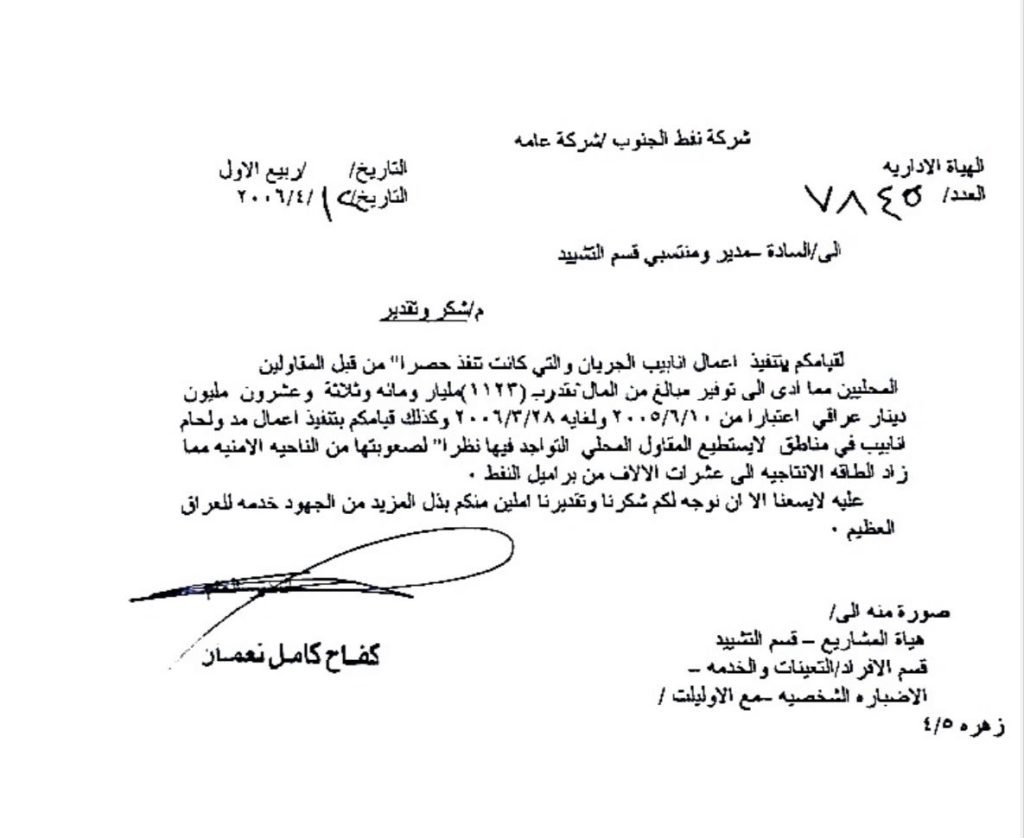 شركة نفط الجنوب /شركة عامه
الهياة الاداريه
العدد/ ٧٨٤٥
التاريخ/ /ربيع الاول
التاريخ/ /٢٠٠٦/٤
الى/السادة –مدير ومنتسبي قسم التشييد
م/شكر وتقدير
لقيامكم بتنفيذ اعمال انابيب الجريان والتي كانت تنفذ حصرا" من قبل المقاولين
المحليين مما أدى الى توفير مبالغ من المال تقدرب (١١٢٣)مليار ومائه وثلاثة وعشرون مليون
دينار عراقي اعتبارا من ٢٠٠٥/٦/١٠ ولغايه ٢٠٠٦/٣/٢٨ وكذلك قيامكم بتنفيذ اعمال مد ولحام
انابيب في مناطق لايستطيع المقاول المحلي التواجد فيها نظرا" لصعوبتها من الناحيه الامنيه مما
زاد الطاقه الانتاجيه الى عشرات الالاف من براميل النفط ٠
عليه لايسعنا الا ان نوجه لكم شكرنا وتقديرنا املين منكم بذل المزيد من الجهود خدمه للعراق
العظيم ٠
كفاح كامل نعمان
صورة منه الى/
هياة المشاريع – قسم التشييد
قسم الافراد/التعينات والخدمه –
الاضباره الشخصيه –مع الاوليلت /
زهره ٤/٥